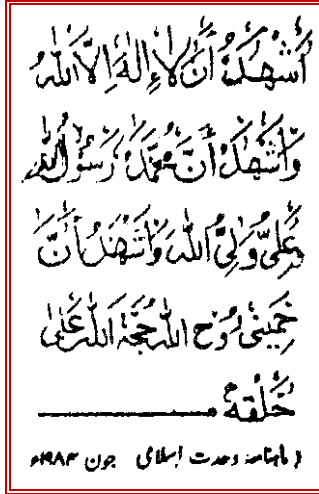 أَشْهَدُ أَنْ لَا إِلٰهَ إِلَّا اللهُ
وَأَشْهَدُ أَنَّ مُحَمَّدَ رَسُوْلُ اللهِ
وَعَلِيٌّ وَلِيُّ اللهِ وَأَشْهَدُ أَنَّ
خَمِيْنِيْ رُوْحُ اللهِ حُجَّةُ اللهِ عَلٰى
خَلْقِهٖ
(ماہنامہ وحدت اسلامی جون ۱۹۸۴ء